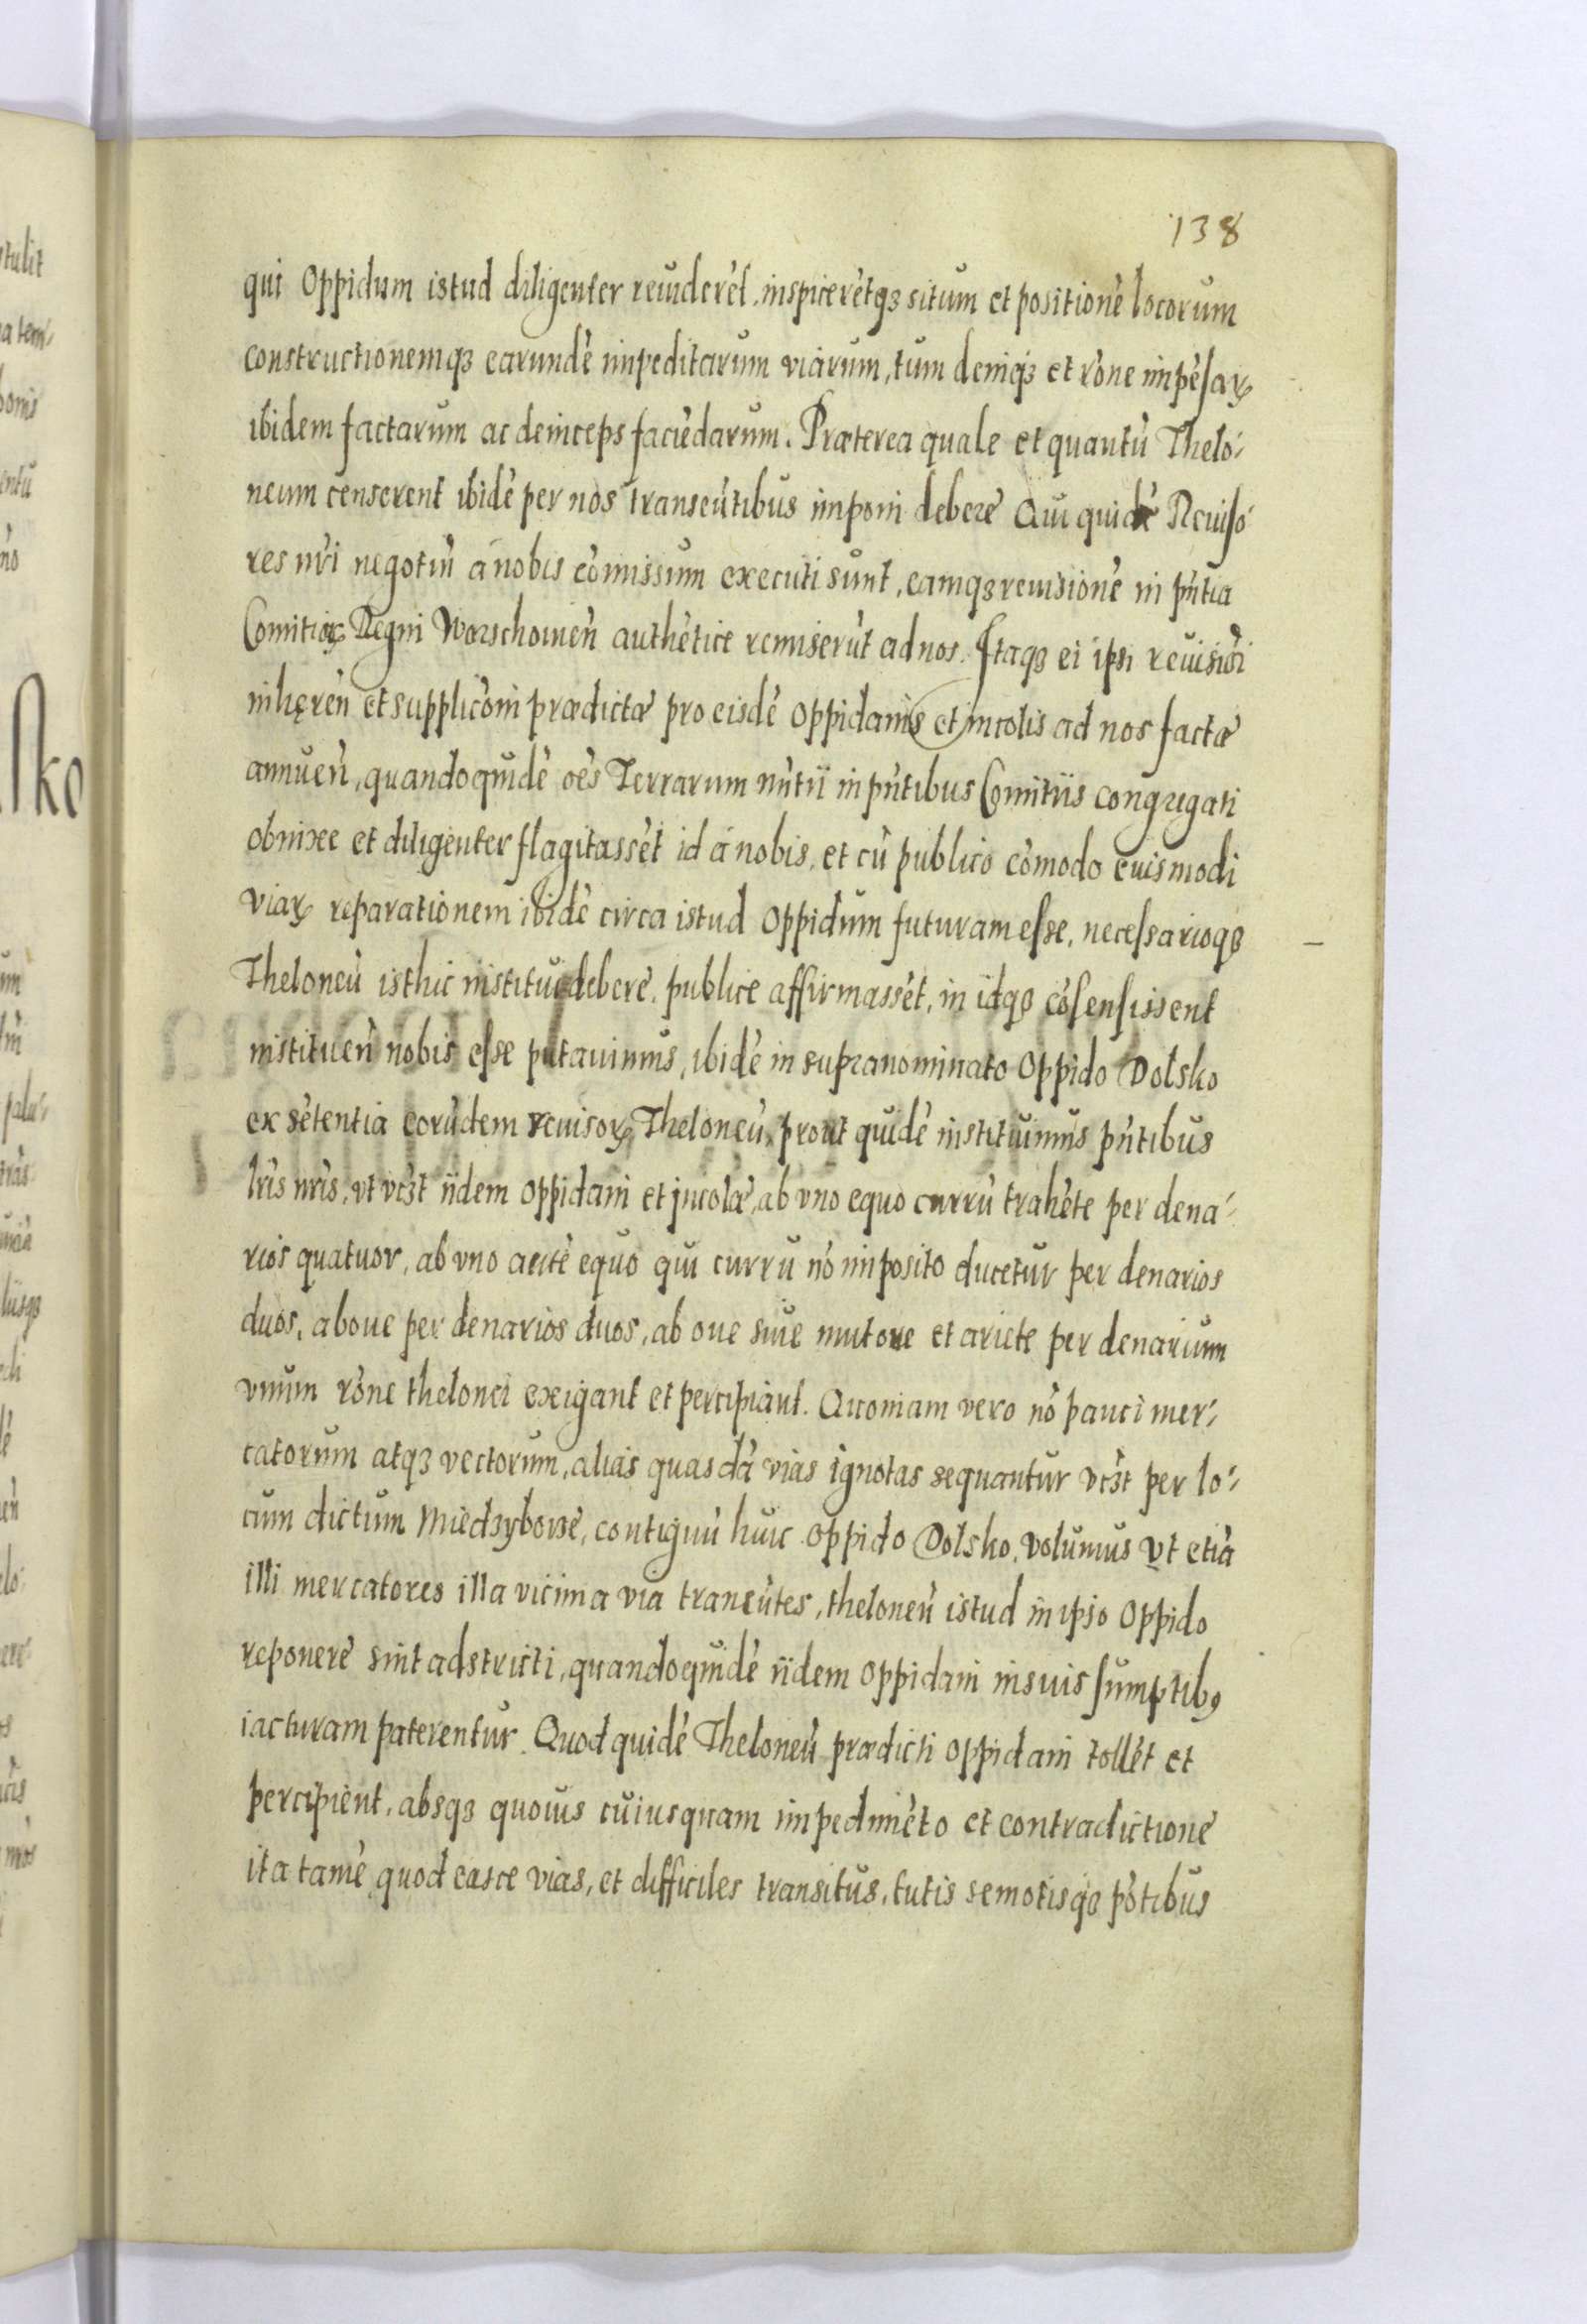 138
qui Oppidum istud diligenter reuiderēt, inspicerētqꝫ situm et positionē locorum
constructionemqꝫ earundē impeditarum viarum, tum deniqꝫ et rōne impēsaꝝ
ibidem factarum ac deinceps faciēdarum. Præterea quale et quantū Thelo-
neum censerent ibidē per nos transeūtibus imponi debere Qui quidē Reuiso-
res nr̄i negotiū a nobis cōmissum executi sunt, eamqꝫ reuisionē in pn̄tia
Comitioꝝ Regni Warschouien̄ authētice remiserūt ad nos. Itaqꝫ ei ipsi reuisiōi
inhęren̄ et supplicōni prædictæ pro eisdē oppidanis et incolis ad nos factæ
annuen̄, quandoquidē oēs Terrarum nūtii in pn̄tibus Comitiis congregati
obnixe et diligenter flagitassēt id a nobis, et cū publico cōmodo euismodi
viaꝝ reparationem ibidē circa istud Oppidum futuram esse, necessarioqꝫ
Theloneū isthic institui debere, publice affirmassēt, in idqꝫ cōsensissent
instituen̄ nobis esse putauimus, ibidē in supranominato Oppido Dolsko
ex sētentia eorūdem reuisoꝝ Theloneū, prout quidē instituimus pn̄tibus
lr̄is nr̄is, vt vcꝫt iidem oppidani et incolæ, ab vno equo currū trahēte per dena-
rios quatuor, ab vno autē equo qui curru nō imposito ducetur per denarios
duos, a boue per denarios duos, ab oue siue mutone et ariete per denarium
vnum rōne thelonei exigant et percipiant. Quoniam vero nō pauci mer-
catorum atqꝫ vectorum, alias quasdā vias ignotas sequantur vcꝫt per lo-
cum dictum Miedzyborze, contiguū huic Oppido Dolsko, volumus vt etiā
illi mercatores illa vicina via transeūtes, theloneū istud in ipso Oppido
reponere sint adstricti, quandoquidē iidem oppidani in suis sumptibꝰ
iacturam paterentur. Quod quidē Theloneū prædicti oppidani tollēt et
percipient, absqꝫ quouis cuiusquam impedimēto et contradictione
ita tamē quod easce vias, et difficiles transitus, tutis semotisqꝫ pōtibus